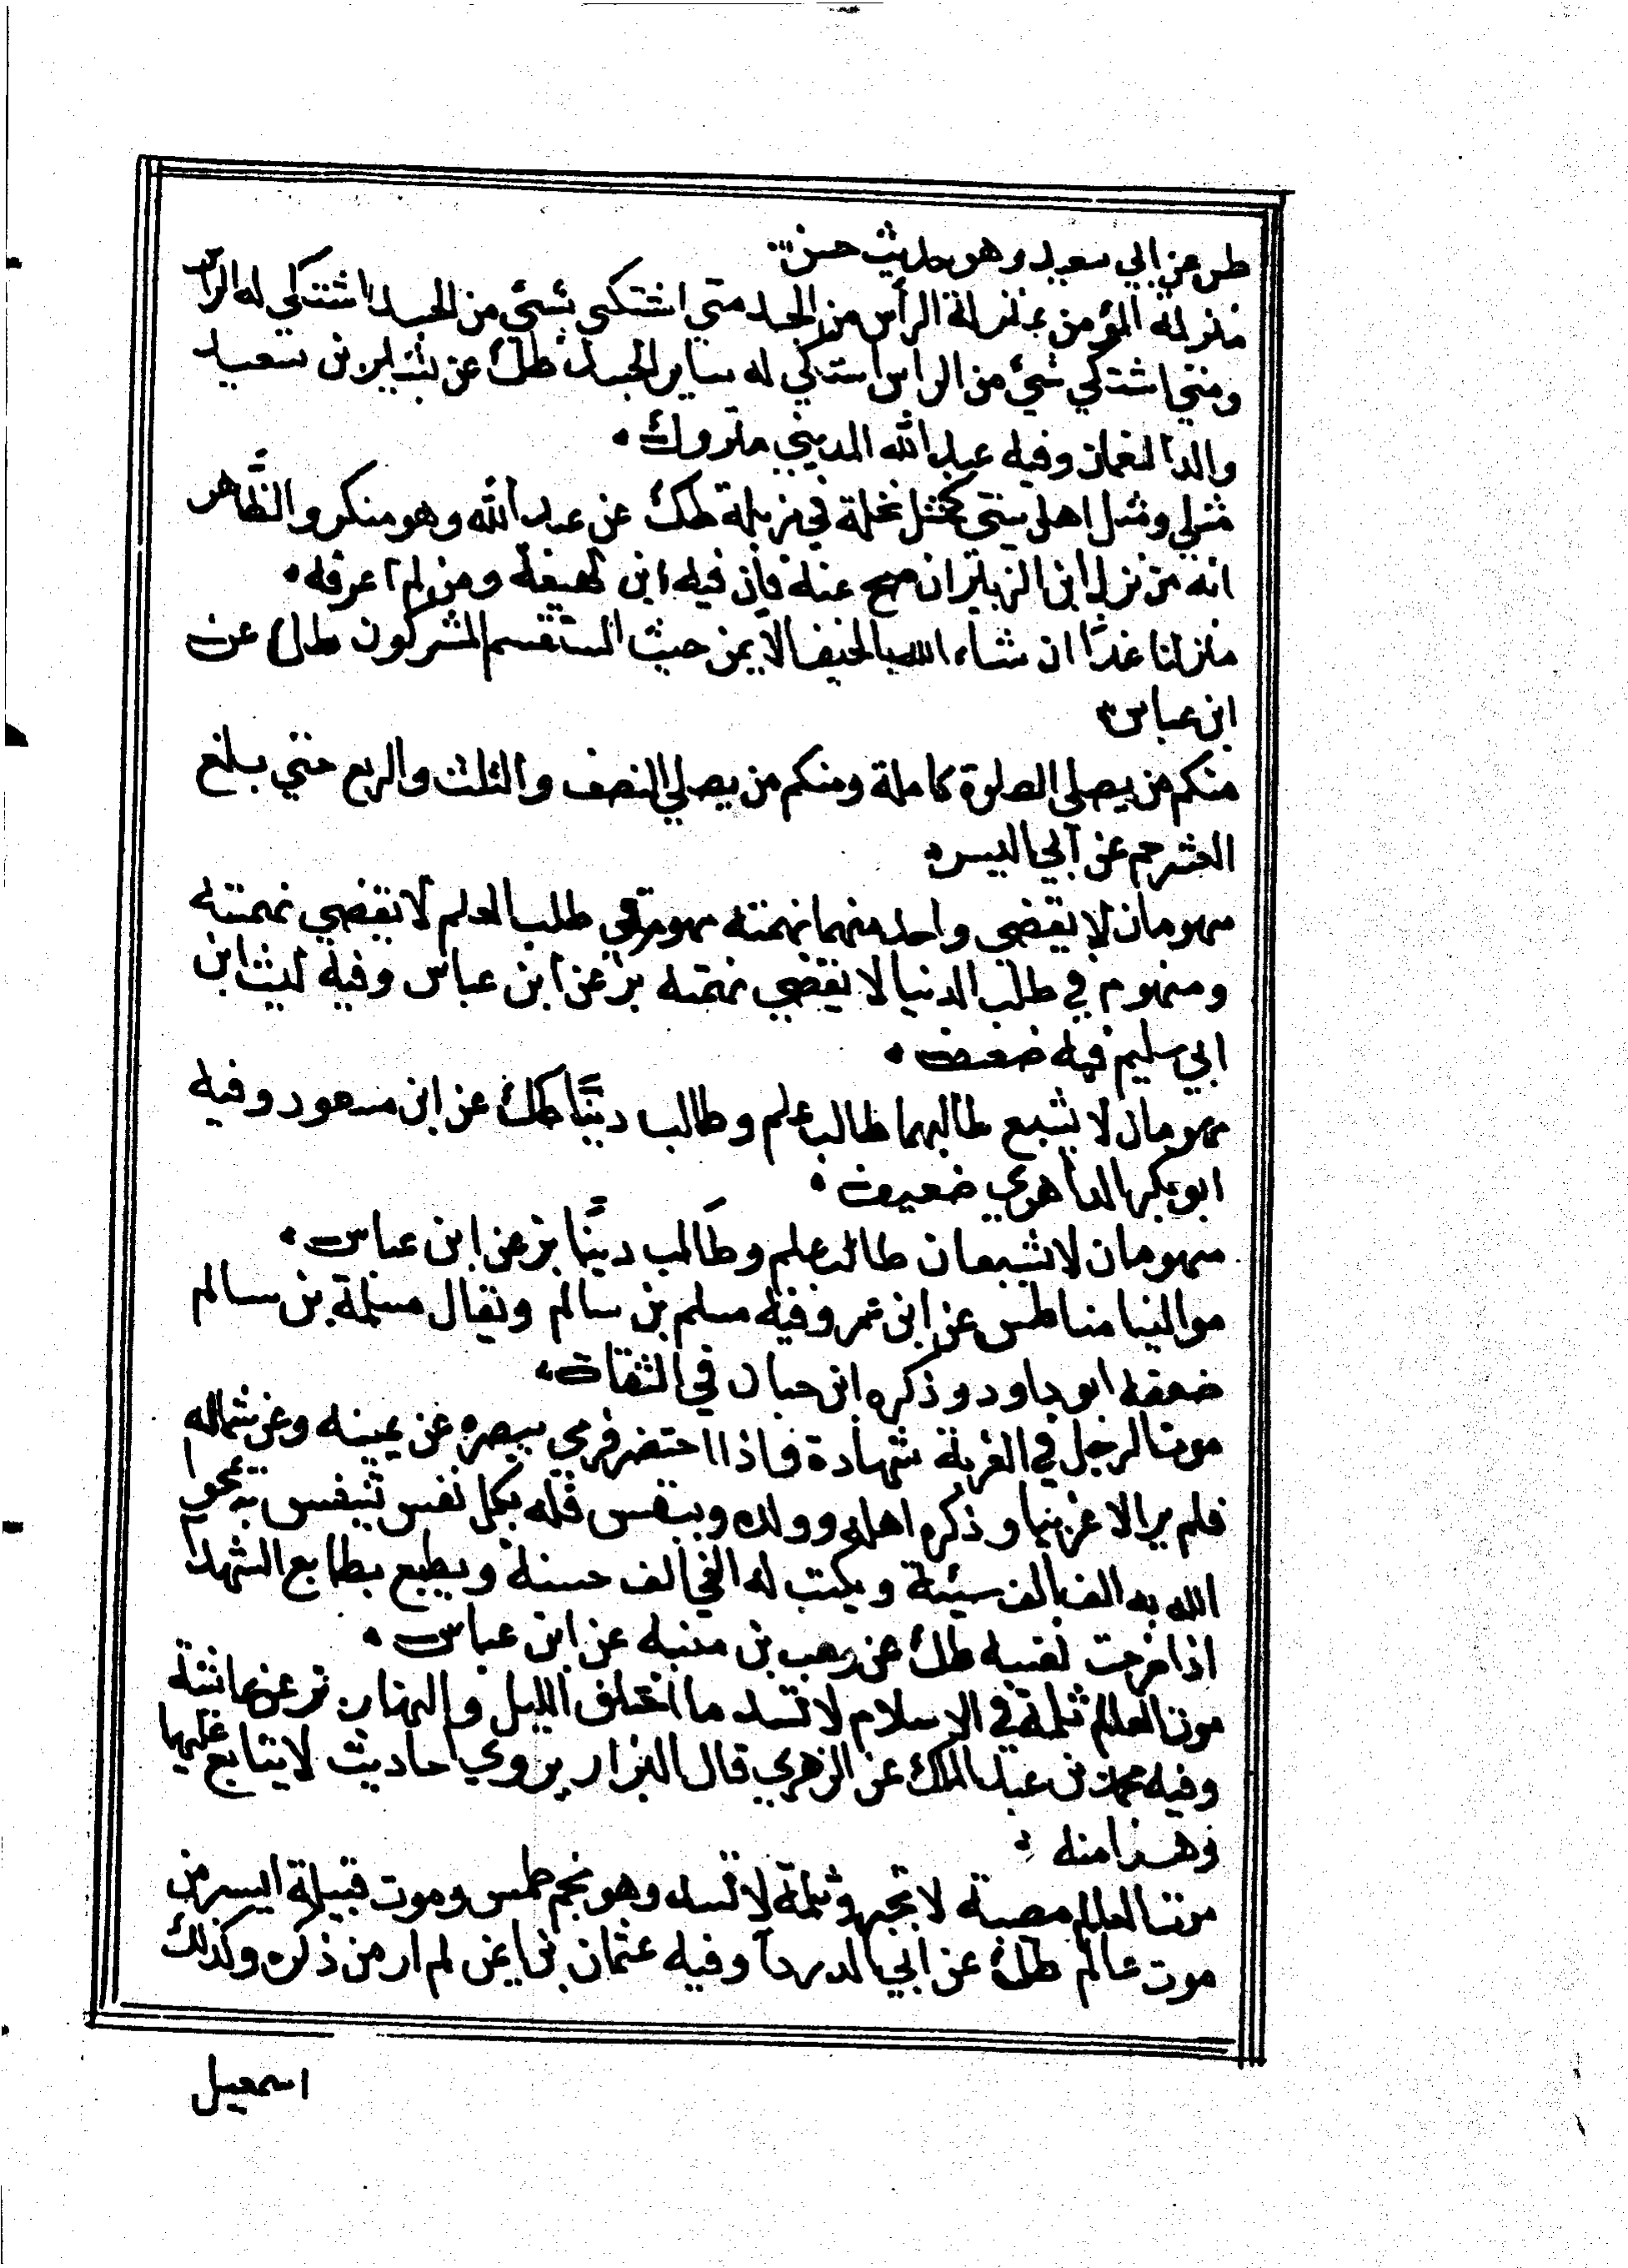 طس عن ابي سعيد وهو حديث حسن
منزلة المؤمن بمنزلة الرأس من الجسد متي اشتكي بشئ من الجسد اشتكي له الرأس
ومتي اشتكي شئ من الراس استكي له ساير الجسد طك عن بشير بن سعيد
والد النعمان وفيه عبد الله المديني متروك
مثلي ومثل اهل بيتي كمثل نخلة في مزبلة طك عن عبد الله وهو منكر والظاهر
انه من نزل ابن الزبير ان صح عنه فان فيه ابن لهيعة ومن لم اعرفه
منزلنا غدا ان شاء الله بالخيف الايمن حيث استقسم المشركون طك عن
ابن عباس
منكم من يصلي الصلوة كاملة ومنكم من يصلي النصف والثلث والربع حتي بلغ
العشر حم عن ابي اليسر
منهومان لا يقضي واحد منهما نهمته منهوم في طلب العلم لا يقضي نهمته
ومنهوم في طلب الدنيا لا يقضي نهمته بز عن ابن عباس وفيه ليث ابن
ابي سليم فيه ضعف
منهومان لا يشبع طالبهما طالب علم وطالب دينا طك عن ابن مسعود وفيه
ابو بكر الداهري ضعيف
منهومان لا يشبعان طالب علم وطالب دينا بز عن ابن عباس
موالينا منا طس عن ابن عمر وفيه مسلم بن سالم ويقال مسلمة بن سالم
ضعفه ابو داود وذكره ابن حبان في الثقات
موت الرجل في الغربة شهادة فاذا احتضر فرمي ببصره عن يمينه وعن شماله
فلم ير الا غريبا وذكر اهله وولده وتنفس فله بكل نفس تنفس به يمحوا
الله به الف الف سيئة ويكتب له الفي الف حسنة ويطبع بطابع الشهدا
اذا خرجت نفسه طك عن وهب بن منبه عن ابن عباس
موت العالم ثلمة في الاسلام لا تسد ما اختلف الليل والنهار بز عن عائشة
وفيه محمد بن عبد الملك عن الزهري قال البزار يروي احاديث لا يتابع عليها
وهذا منه
موت العالم مصيبة لا تجبر وثلمة لا تسد وهو نجم طمس وموت قبيلة ايسر من
موت عالم طك عن ابي الدردآ وفيه عثمان بن ايمن لم ار من ذكره وكذلك
اسمعيل